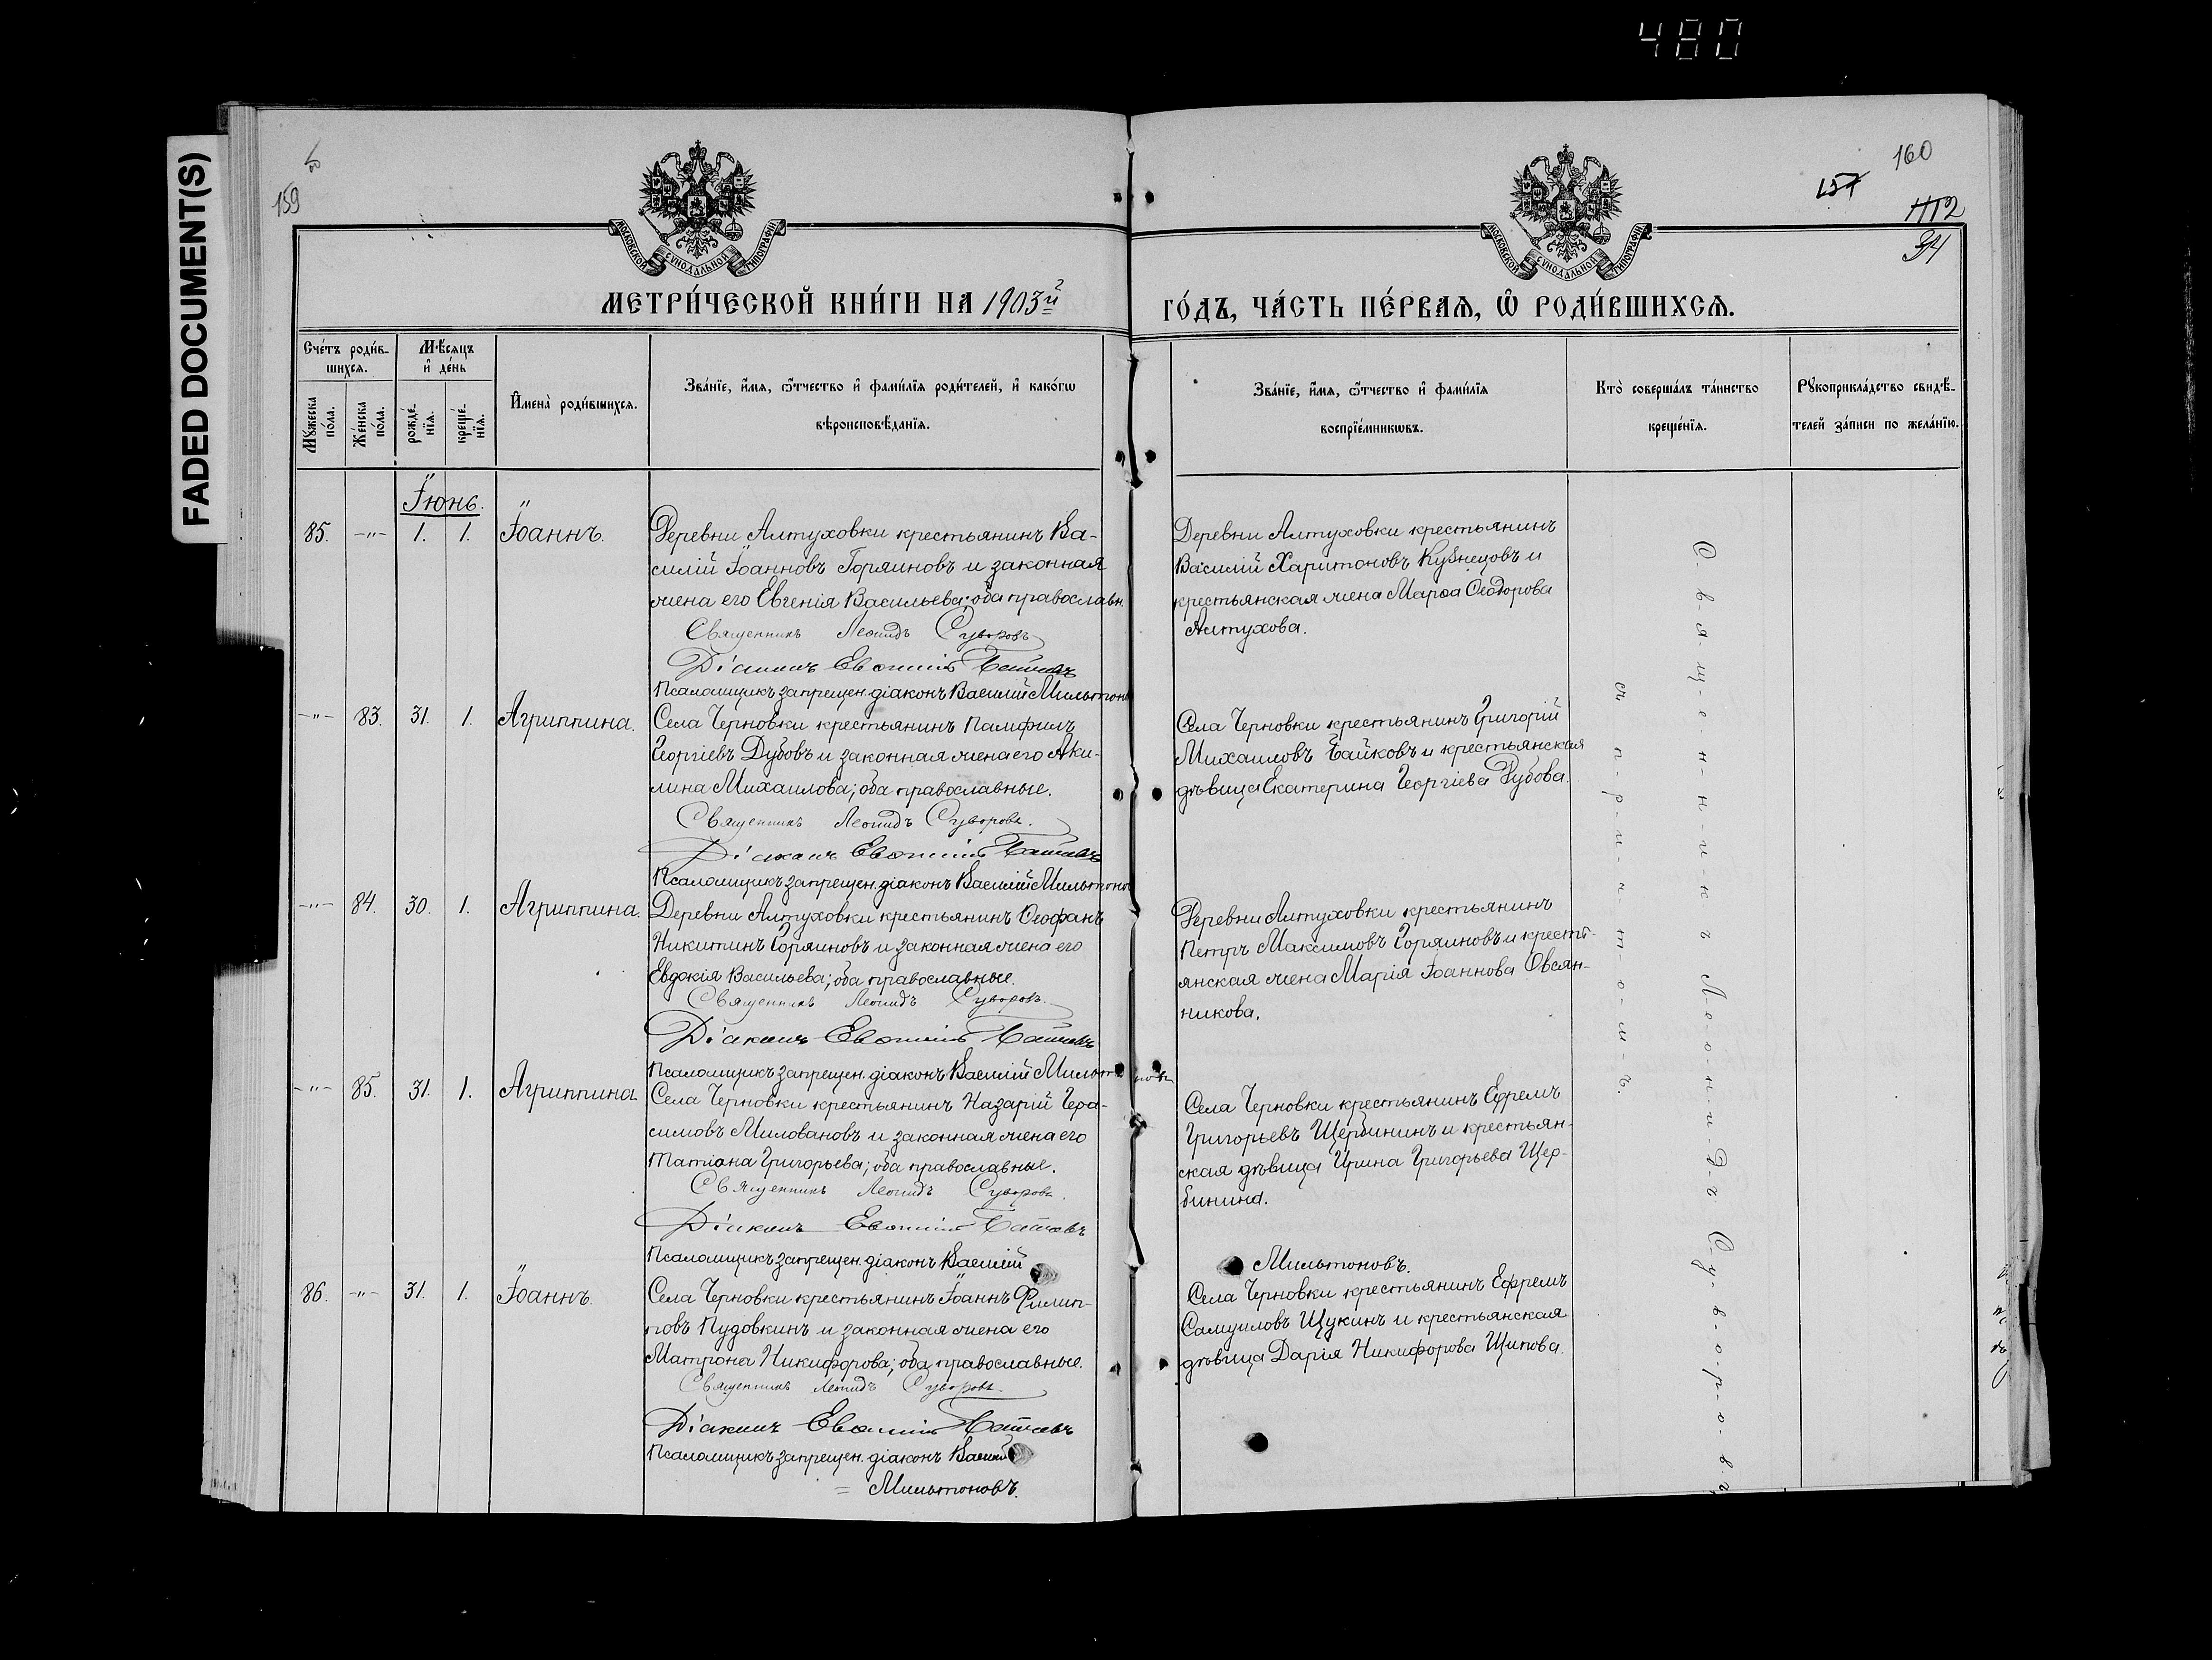 480
FADED DOCUMENT(S)
159
160
157
34
МОСКОВСКОЙ СѴНОДАЛЬНОЙ ТИПОГРАФІИ
МОСКОВСКОЙ СѴНОДАЛЬНОЙ ТИПОГРАФІИ
МЕТРИ́ЧЕСКОЙ КНИ́ГИ НА 1903й
ГО́ДЪ, ЧА́СТЬ ПЕ́РВАѦ, Ѿ РОДИ́ВШИХСѦ.
Сче́тъ роди́в-
шихсѧ.
Мѣ́сѧцъ
и҆ де́нь
Мꙋ́жеска
по́ла.
Же́нска
по́ла.
рожде́-
нїѧ.
креще́-
нїѧ.
И҆мена̀ роди́вшихсѧ.
Зва́нїе, и҆́мѧ, ѻ҆́тчество и҆ фами́лїѧ роди́телей, и҆ како́гѡ
вѣроисповѣ́данїѧ.
Зва́нїе, и҆́мѧ, ѻ҆́тчество и҆ фами́лїѧ
воспрїе́мникѡвъ.
Кто̀ соверша́лъ та́инство
креще́нїѧ.
Рꙋкоприкла́дство свидѣ́-
телей за́писи по жела́нїю.
Іюнь.
85. -"- 1. 1. Іоаннъ.
Деревни Алтуховки крестьянинъ Ва-
силій Іоанновъ Горяиновъ и законная
жена его Евгенія Васильева; оба православн.
Священникъ Леонидъ Суворовъ
Діаконъ
Псаломщикъ запрещен. діаконъ Василій Мильтонов
Деревни Алтуховки крестьянинъ
Василій Харитоновъ Кузнецовъ и
крестьянская жена Марѳа Ѳеодорова
Алтухова.
-"- 83. 31. 1. Агриппина.
Села Черновки крестьянинъ Памфилъ
Георгіевъ Дубовъ и законная жена его Аки-
лина Михаилова; оба православные.
Священникъ Леонидъ Суворовъ.
Діаконъ
Псаломщикъ запрещен. діаконъ Василій Мильтонов
Села Черновки крестьянинъ Григорій
Михаиловъ Байковъ и крестьянская
дѣвица Екатерина Георгіева Дубова.
-"- 84. 30. 1. Агриппина.
Деревни Алтуховки крестьянинъ Ѳеофанъ
Никитинъ Горяиновъ и законная жена его
Евдокія Васильева; оба православные.
Священникъ Леонидъ Суворовъ.
Діаконъ
Псаломщикъ запрещен. діаконъ Василій Мильтоновъ
Деревни Алтуховки крестьянинъ
Петръ Максимовъ Горяиновъ и кресть-
янская жена Марія Іоаннова Овсян-
никова.
-"- 85. 31. 1. Агриппина.
Села Черновки крестьянинъ Назарій Гера-
симовъ Миловановъ и законная жена его
Татіана Григорьева; оба православные.
Священникъ Леонидъ Суворовъ.
Діаконъ
Псаломщикъ запрещен. діаконъ Василій
Мильтоновъ.
Села Черновки крестьянинъ Ефремъ
Григорьевъ Щербининъ и крестьян-
ская дѣвица Ирина Григорьева Щер-
бинина.
86. -"- 31. 1. Іоаннъ.
Села Черновки крестьянинъ Іоаннъ Филип-
повъ Пудовкинъ и законная жена его
Матрона Никифорова; оба православные.
Священникъ Леонидъ Суворовъ.
Діаконъ
Псаломщикъ запрещен. діаконъ Василій
= Мильтоновъ.
Села Черновки крестьянинъ Ефремъ
Самуиловъ Щукинъ и крестьянская
дѣвица Дарія Никифорова Щипова.
С-в-я-щ-е-н-н-и-к-ъ Л-е-о-н-и-д-ъ С-у-в-о-р-о-в-ъ
съ п-р-и-ч-т-о-м-ъ.